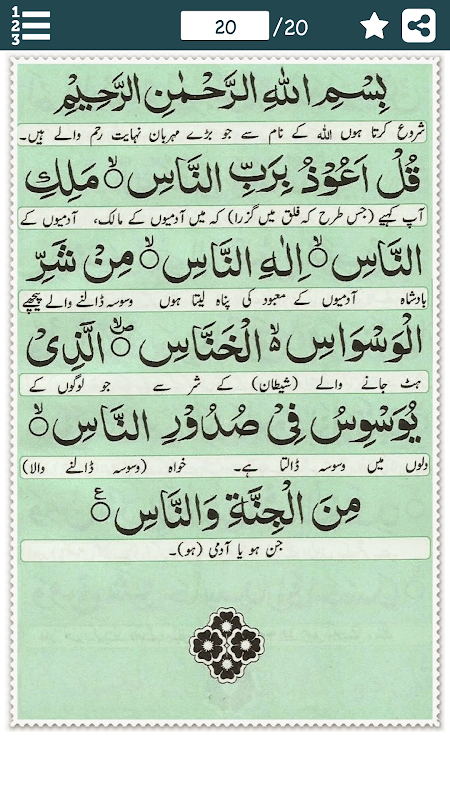 1
2
3
20 /20
بِسْمِ اللهِ الرَّحْمٰنِ الرَّحِيْمِ
شروع کرتا ہوں اللہ کے نام سے جو بڑے مہربان نہایت رحم والے ہیں۔
قُلْ اَعُوْذُ بِرَبِّ النَّاسِ ۙ مَلِكِ
آپ کہیے (جس طرح کہ فلق میں گزرا) کہ میں آدمیوں کے مالک، آدمیوں کے
النَّاسِ ۙ اِلٰهِ النَّاسِ ۙ مِنْ شَرِّ
بادشاہ آدمیوں کے معبود کی پناہ لیتا ہوں وسوسہ ڈالنے والے پیچھے
الْوَسْوَاسِ ۙ الْخَنَّاسِ ۪ۙ الَّذِیْ
ہٹ جانے والے (شیطان) کے شر سے جو لوگوں کے
یُوَسْوِسُ فِیْ صُدُوْرِ النَّاسِ ۙ
دلوں میں وسوسہ ڈالتا ہے۔ خواہ (وسوسہ ڈالنے والا)
مِنَ الْجِنَّةِ وَالنَّاسِ ۠
جن ہو یا آدمی (ہو)۔